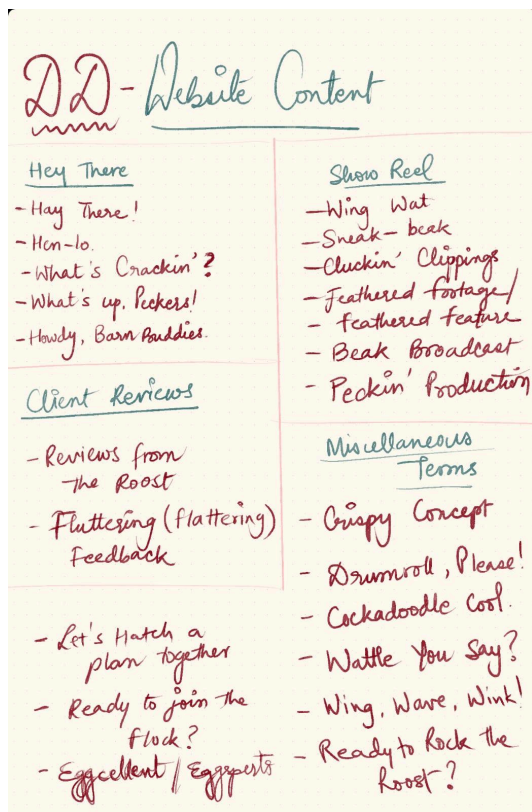 DD - Website Content
Hey There
- Hay There!
- Hen-lo.
- What's Crackin'?
- What's up, Peckers!
- Howdy, Barn Buddies.
Client Reviews
- Reviews from
The Roost
- Fluttering (flattering)
Feedback
- Let's Hatch a
plan together
- Ready to join the
flock?
- Eggcellent / Eggsperts
Show Reel
- Wing Wat
- Sneak-beak
- Cluckin' Clippings
- Feathered footage/
- feathered feature
- Beak Broadcast
- Peckin' Production
Miscellaneous
Terms
- Crispy Concept
- Drumroll, Please!
- Cockadoodle Cool.
- Wattle You Say?
- Wing, Wave, Wink!
- Ready to Rock the
Roost?